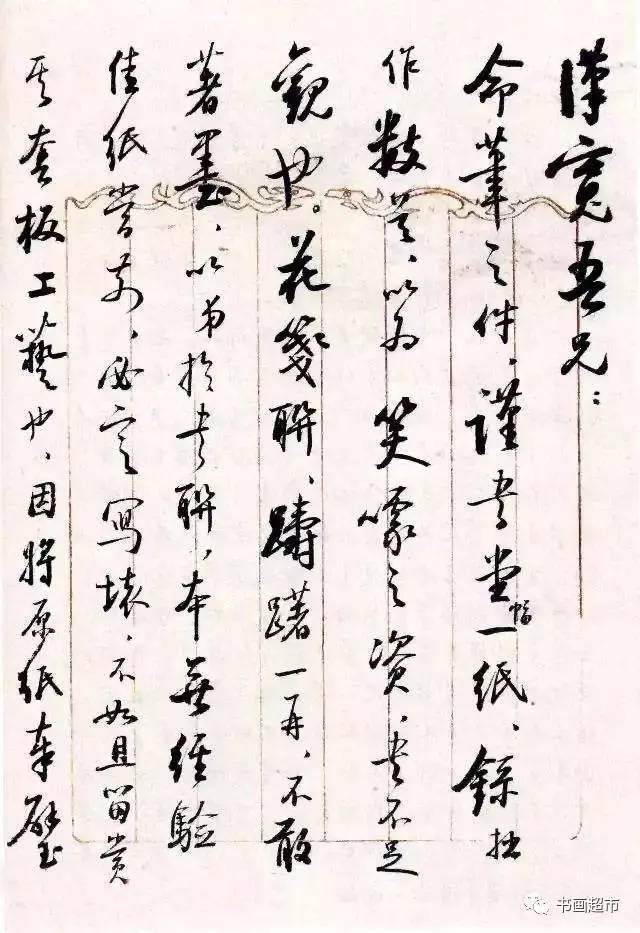 漢寬吾兄：
命筆之件，謹書堂幅一紙，錄拙
作數首，以為笑噱之資，書不足
觀也。花箋聯，躊躇一再，不敢
著墨，以弟於書聯，本無經驗
佳紙當前，必定寫壞，不如且留賞
其套板工藝也，因將原紙奉璧
书画超市